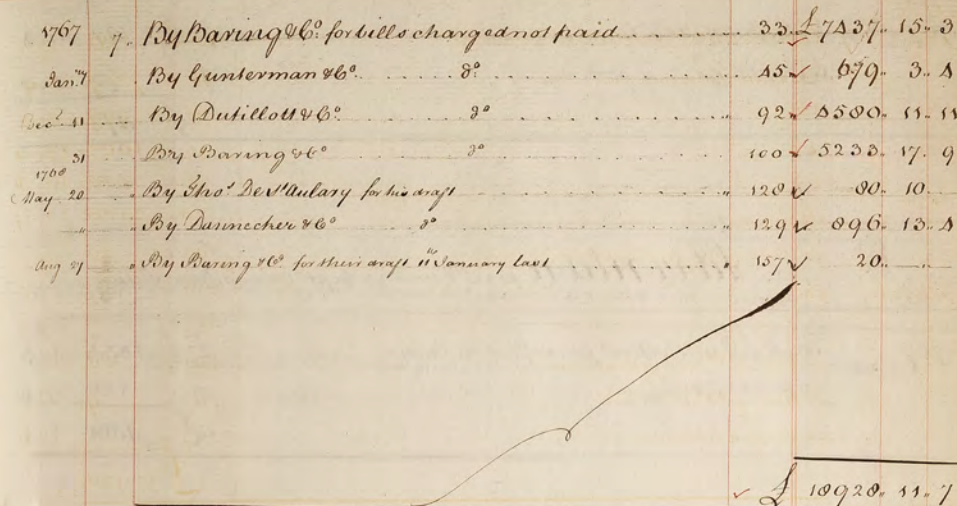 1767 7. By Baring & Co. for bills charged not paid 33 £ 7437. 15. 3
Jan.ry By Gunterman & Co. do. 45 679. 3. 4
Dec.r 11 By Dutillott & Co. do 92 4580. 11. 11
31 By Baring & Co do 100 5233. 17. 9
1768
May 20 By Thos. De St. Aulary for his draft 128 80. 10.
" By Dannecher & Co do 129 896. 13. 4
Aug 27 By Baring & Co. for their draft 11th January last 157 20.
£ 18928. 11. 7